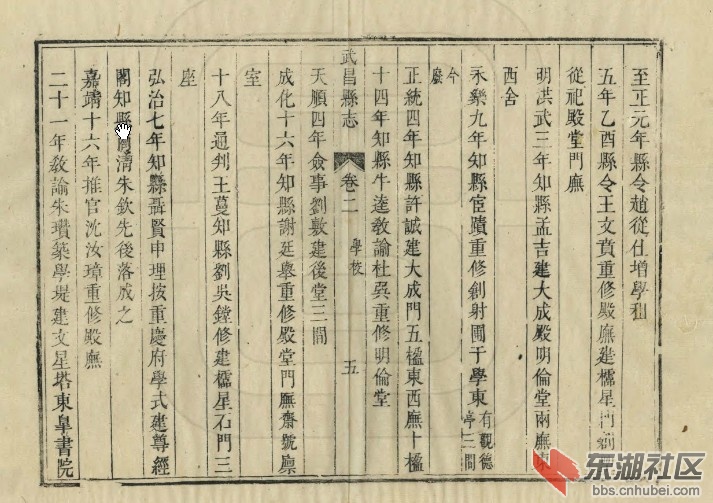 至正元年縣令趙從仕增學租
五年乙酉縣令王文賁重修殿廡建櫺星門
從祀殿堂門廡
明洪武三年知縣孟吉建大成殿明倫堂兩廡東
西舍
永樂九年知縣宦蹟重修創射圃于學東有觀德亭三間
今廢
正統四年知縣許誠建大成門五楹東西廡十楹
十四年知縣牛逵教諭杜昊重修明倫堂
武昌縣志 卷二 學校 五
天順四年僉事劉敷建後堂三間
成化十六年知縣謝廷舉重修殿堂門廡齋號廪
室
十八年通判王蔓知縣劉吳鏜修建櫺星石門三
座
弘治七年知縣聶賢申理按重慶府學式建尊經
閣知縣清朱欽先後落成之
嘉靖十六年推官沈汝璋重修殿廡
二十一年教諭朱瓚築學堤建文星塔東臯書院
东湖社区
bbs.cnhubei.com